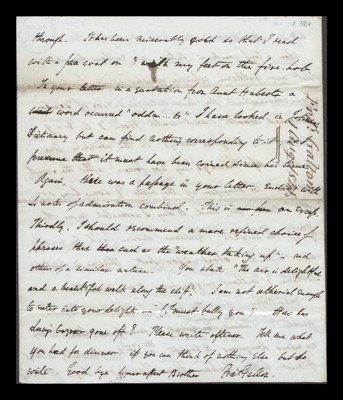 through. It has been miserably cold so that I read
with a pea coat on & with my feet on the fire-hob
In your letter in a quotation from Aunt a
word occurred "oddn...ts" I have looked in
Dictionary but can find nothing corresponding to it
presume that it must have been coined since his time
Again, there was a passage in your letter ending with
notes of admiration combined. This is an excess.
Thirdly. I should recommend a more refined choice of
phrases than such as the "weather taking up" - and
others of a similar nature. You state "The air is delightful
and a beautiful walk along the cliff. I am not ethereal enough
to enter into your delight - I must bully you How has
Lucy's gone off? Please write oftener. Tell me what
you had for dinner if you can think of nothing else but do
write. Good bye Your affect Brother Fra Galton